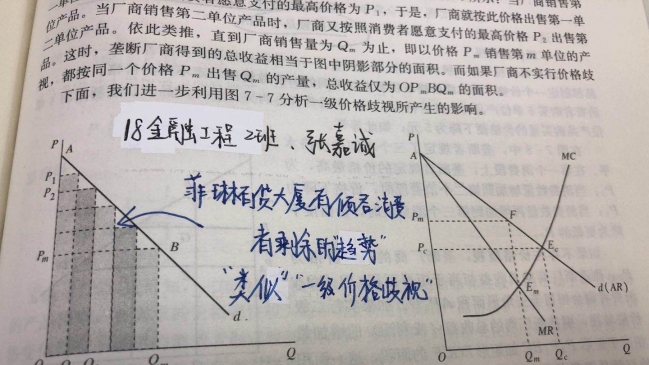 者愿意支付的最高价格为P₁,于是,厂商就按此价格出售第一单
位产品。当厂商销售第二单位产品时,厂商又按照消费者愿意支付的最高价格P₂出售第
二单位产品。依此类推,直到厂商销售量为Qₘ为止,即以价格Pₘ销售第m单位的产
品。这时,垄断厂商得到的总收益相当于图中阴影部分的面积。而如果厂商不实行价格歧
视,都按同一个价格Pₘ出售Qₘ的产量,总收益仅为OPₘBQₘ的面积。
下面,我们进一步利用图7-7分析一级价格歧视所产生的影响。
18金融工程 2班、张嘉诚
菲琳百货大厦有倾吞消费
者剩余的"趋势"
"类似""一级价格歧视"
P
A
P₁
P₂
Pₘ
B
d
Qₘ
Q
P
A
MC
Pₘ
F
P꜀
E꜀
d(AR)
Eₘ
MR
O
Qₘ
Q꜀
Q